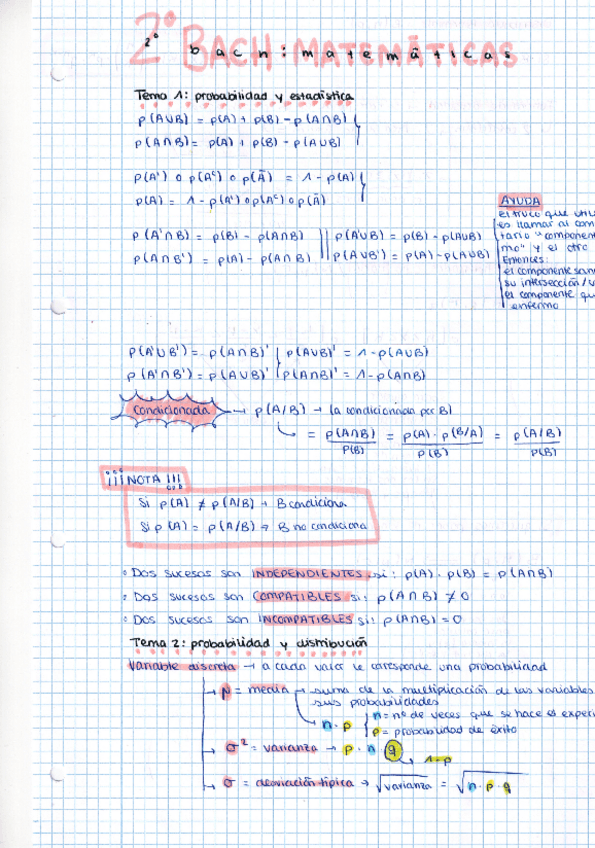 2º BACH: MATEMÁTICAS
2º bach: matemáticas
Tema 1: probabilidad y estadística
p(A∪B) = p(A) + p(B) - p(A∩B)
p(A∩B) = p(A) + p(B) - p(A∪B)
p(A') o p(Aᶜ) o p(Ā) = 1 - p(A)
p(A) = 1 - p(A') o p(Aᶜ) o p(Ā)
AYUDA
El truco que utili
es llamar al com
tario "component
mo" y el otro
Entonces:
el componente san
su intersección/u
el componente qu
enfermo
p(A'∩B) = p(B) - p(A∩B) || p(A'∪B) = p(B) - p(A∪B)
p(A∩B') = p(A) - p(A∩B) || p(A∪B') = p(A) - p(A∪B)
p(A'∪B') = p(A∩B)' | p(A∪B)' = 1 - p(A∪B)
p(A'∩B') = p(A∪B)' | p(A∩B)' = 1 - p(A∩B)
Condicionada → p(A/B) → (A condicionada por B)
= p(A∩B)/p(B) = p(A) · p(B/A)/p(B) = p(A/B)/p(B)
¡¡¡NOTA!!!
Si p(A) ≠ p(A/B) → B condiciona
Si p(A) = p(A/B) → B no condiciona
◦ Dos sucesos son INDEPENDIENTES si: p(A) · p(B) = p(A∩B)
◦ Dos sucesos son COMPATIBLES si: p(A∩B) ≠ 0
◦ Dos sucesos son INCOMPATIBLES si: p(A∩B) = 0
Tema 2: probabilidad y distribución
Variable discreta → a cada valor le corresponde una probabilidad
→ μ = media → suma de la multiplicación de las variables
sus probabilidades
n · p { n = nº de veces que se hace el experi
p = probabilidad de éxito
→ σ² = varianza → p · n · q → 1-p
→ σ = desviación típica → √varianza = √n · p · q